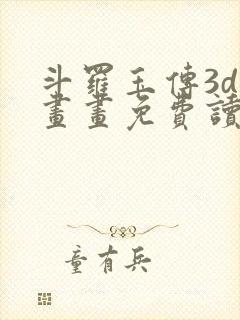 斗羅玉傳3d
畫畫免費讀
童有兵